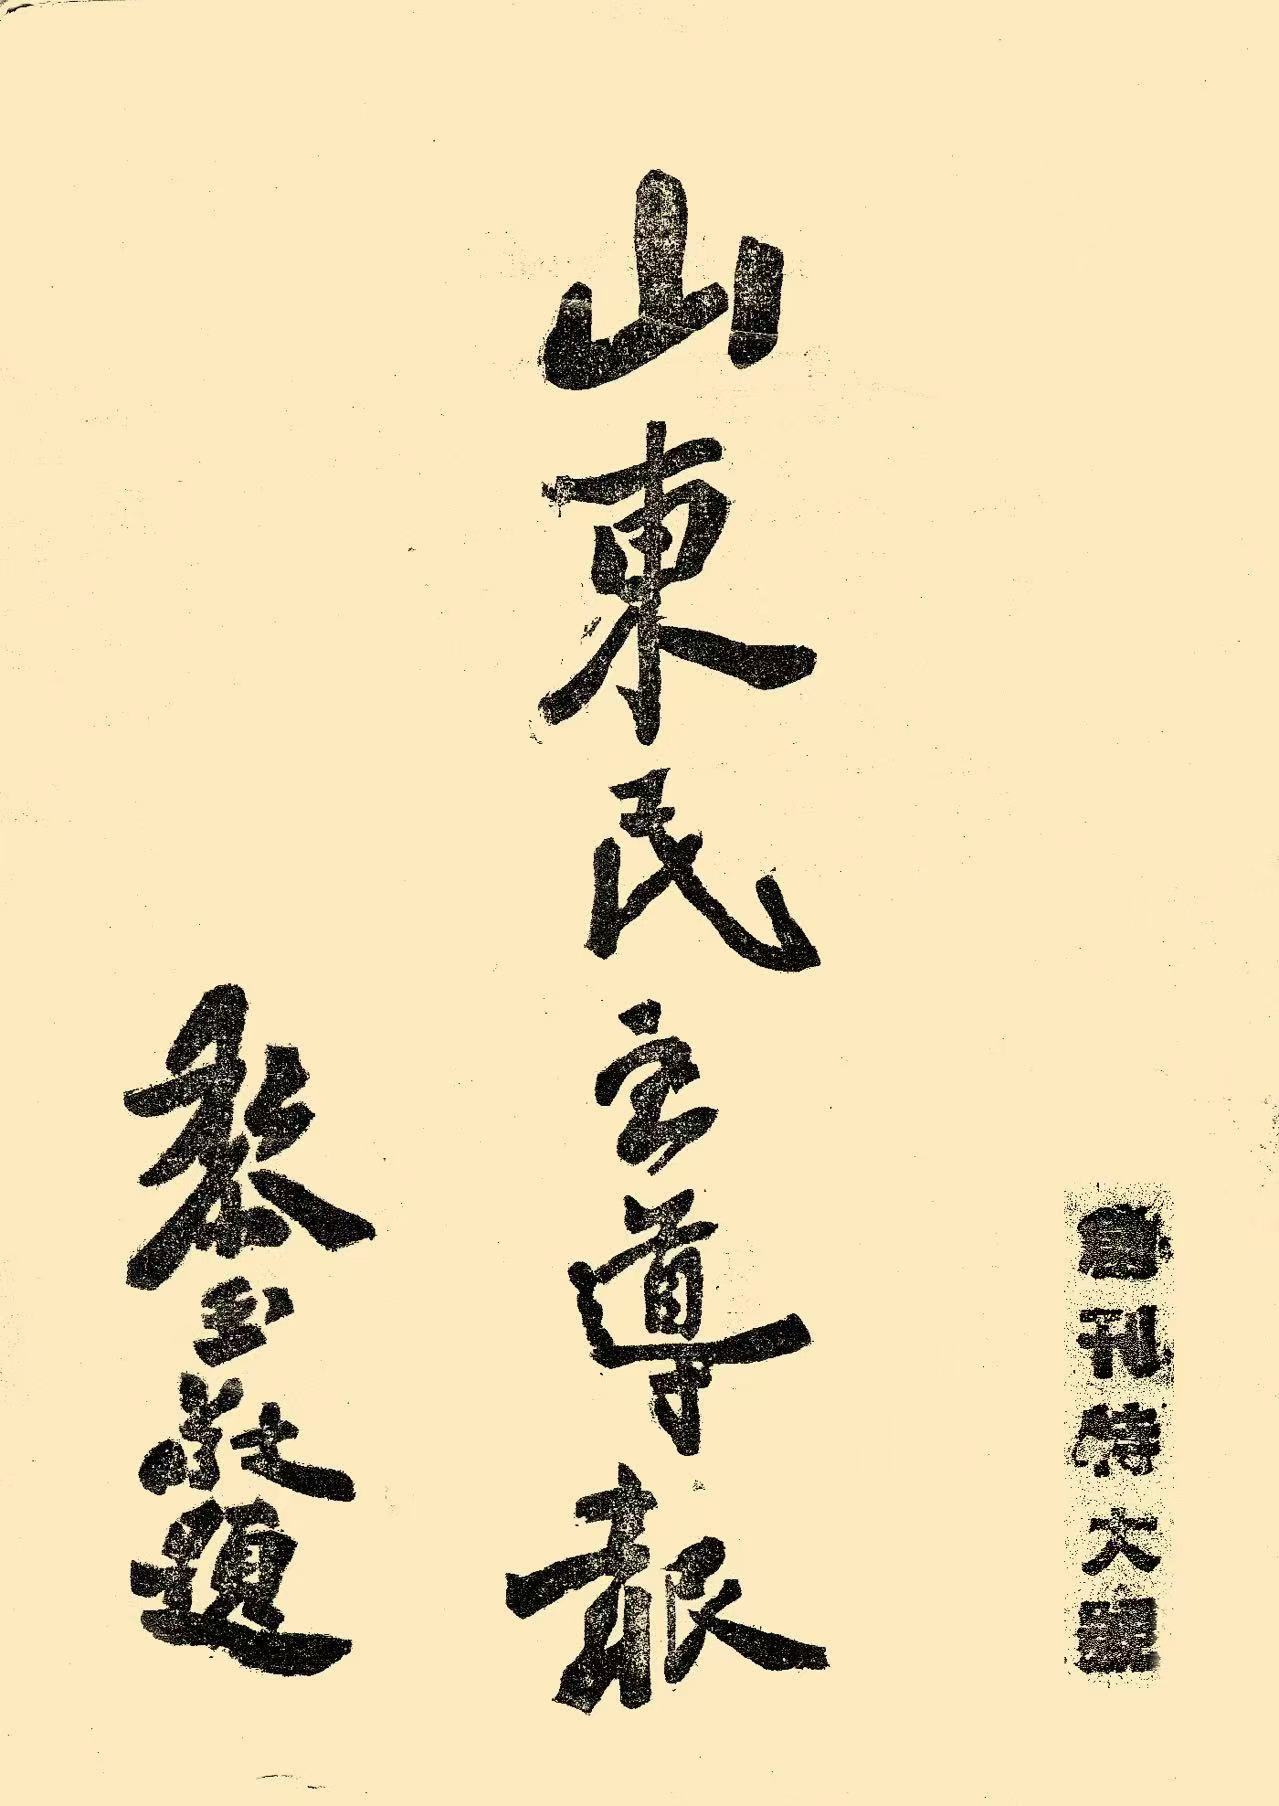 創刊特大號
山東民主導報
黎玉敬題